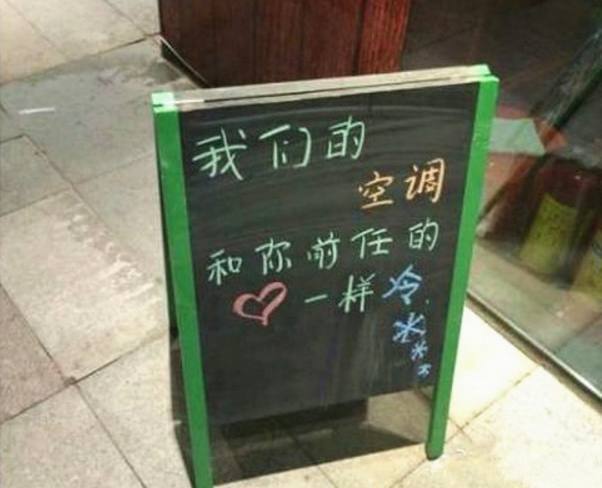 我们的
空调
和你前任的
一样冷